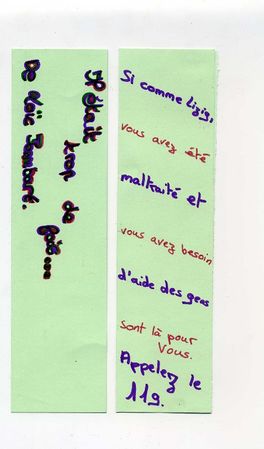 Il était
trop de
fois...
De Loïc
Si comme Lizig,
vous avez été
maltraité et
vous avez besoin
d'aide des gens
sont là pour
vous.
Appelez le
119.